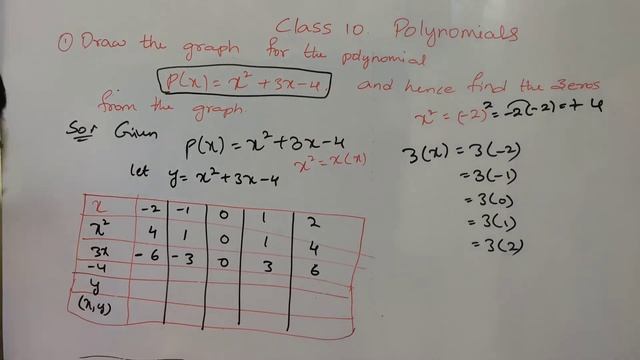 Class 10 Polynomials
① Draw the graph for the polynomial
P(x) = x² + 3x - 4 and hence find the zeros
from the graph.
x² = (-2)² = -2(-2) = + 4
Sol Given
P(x) = x² + 3x - 4
x² = x(x)
let y = x² + 3x - 4
3(x) = 3(-2)
= 3(-1)
= 3(0)
= 3(1)
= 3(2)
x -2 -1 0 1 2
x² 4 1 0 1 4
3x -6 -3 0 3 6
-4
y
(x,y)